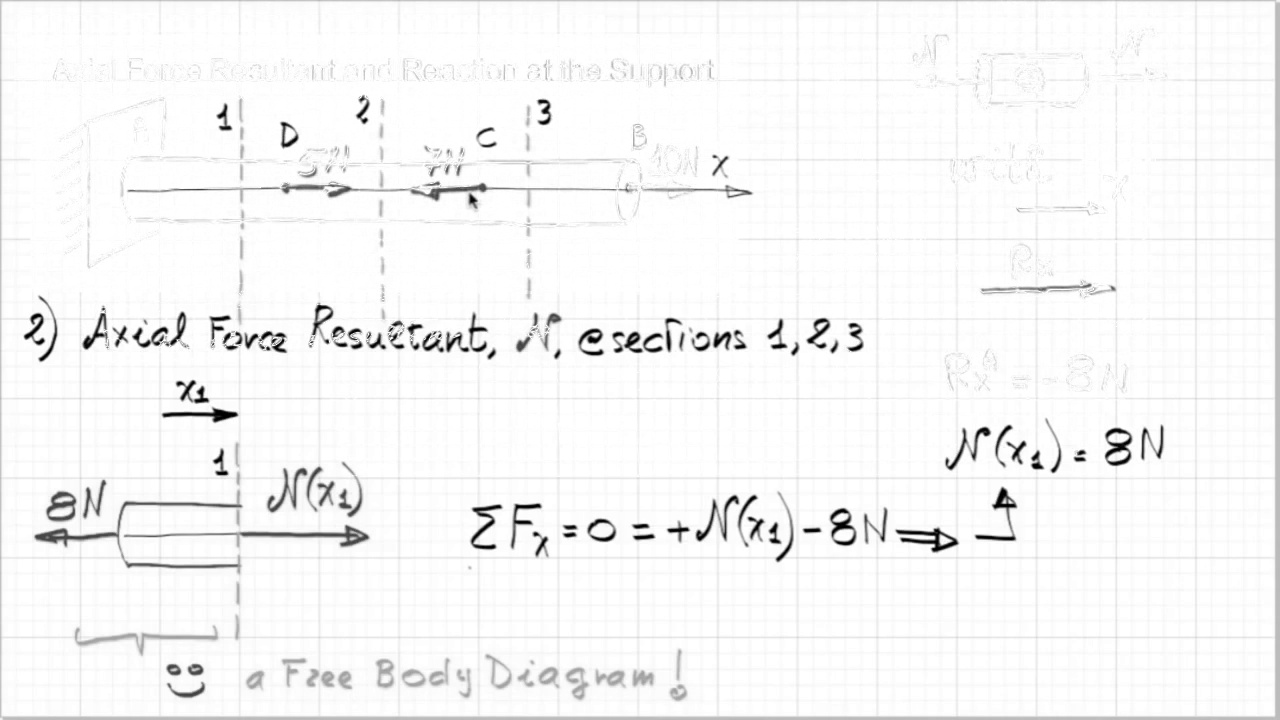 Axial Force Resultant and Reaction at the Support
N N
1 2 3
A D C B
5N 7N 10N x
with
x
Rx
2) Axial Force Resultant, N, @sections 1,2,3
Rx^A = -8N
x₁
N(x₁) = 8N
1
8N N(x₁)
ΣFₓ = 0 = +N(x₁) - 8N ⇒
a Free Body Diagram!